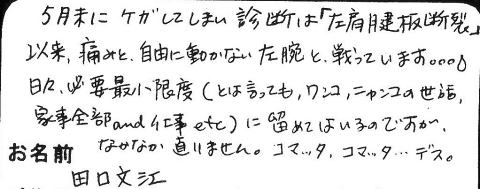 5月末に ケガしてしまい 診断は「左肩腱板断裂」
以来、痛みと、自由に動かない 左腕と、戦っています。。。
日々、必要最小限度（とは言っても、ワンコ、ニャンコの世話、
家事全部and 仕事 etc）に 留めてはいるのですが、
なかなか 直りません。コマッタ、コマッタ…デス。
お名前
田口文江